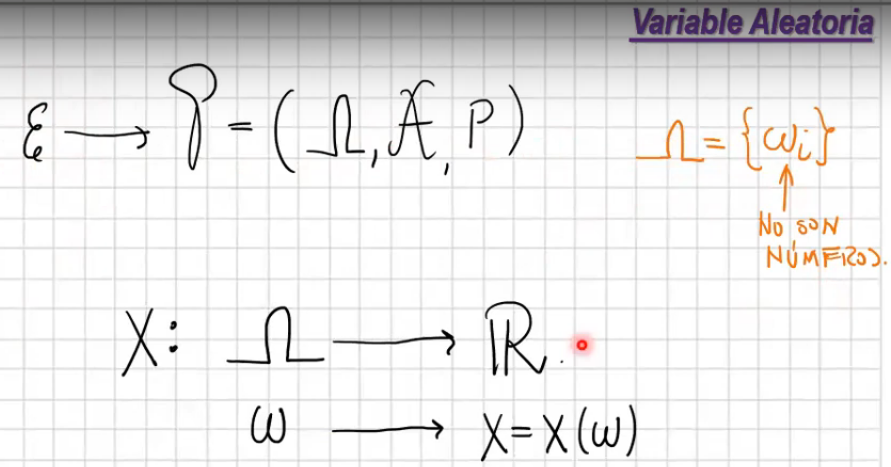 Variable Aleatoria
ℰ → 𝒫 = (Ω, 𝒜, P)
Ω = {ωi}
NO SON
NÚMEROS.
X: Ω → ℝ.
ω → x = X(ω)